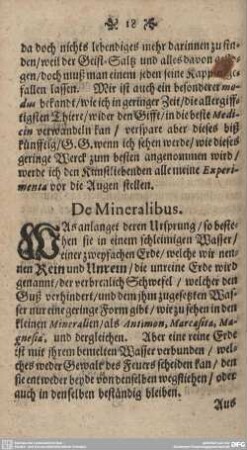 18
da doch nichts lebendiges mehr darinnen zu fin-
den / weil der Geist-Saltz und alles davon
gen / doch muß man einem jeden seine Kappe ge-
fallen lassen. Mir ist auch ein besonderer mo-
dus bekandt / wie ich in geringer Zeit / die allergiff-
tigsten Thiere / wider den Gifft / in die beste Medi-
cin verwandeln kan / verspare aber dieses biß
künfftig / G. G. wenn ich sehen werde / wie dieses
geringe Werck zum besten angenommen wird /
werde ich den Kunstliebenden alle meine Experi-
menta vor die Augen stellen.
De Mineralibus.
WAs anlanget deren Ursprung / so beste-
hen sie in einem schleimigen Wasser /
einer zweyfachen Erde / welche wir nen-
nen Rein und Unrein / die unreine Erde wird
genannt / der verbrealich Schwefel / welcher den
Guß verhindert / und dem ihm zugesetzten Was-
ser nur eine geringe Form gibt / wie zu sehen in den
kleinen Mineralien / als Antimon, Marcasita, Ma-
gnesia, und dergleichen. Aber eine reine Erde
ist mit ihrem bemelten Wasser verbunden / wel-
ches weder Gewalt des Feuers scheiden kan / den
sie entweder beyde von denselben wegfliehen / oder
auch in denselben beständig bleiben.
Aus